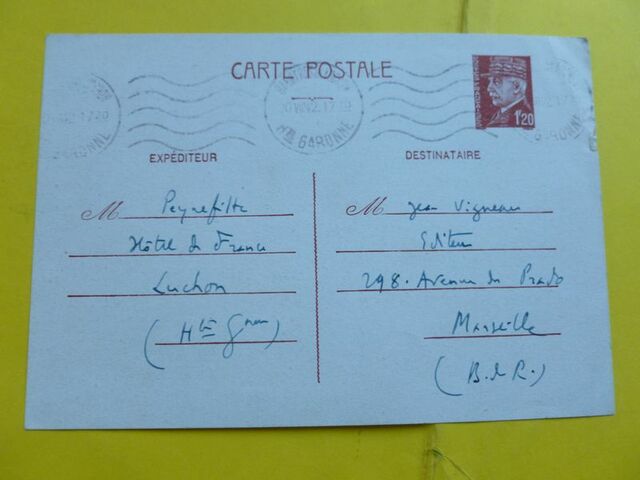 CARTE POSTALE
1f20
42.17
Hte GARONNE
GARONNE
EXPÉDITEUR
M Peyrefitte
Hôtel de France
Luchon
(Hte Gnne)
DESTINATAIRE
M Jean Vigneau
Editeur
298. Avenue du Prado
Marseille
(B. d R.)